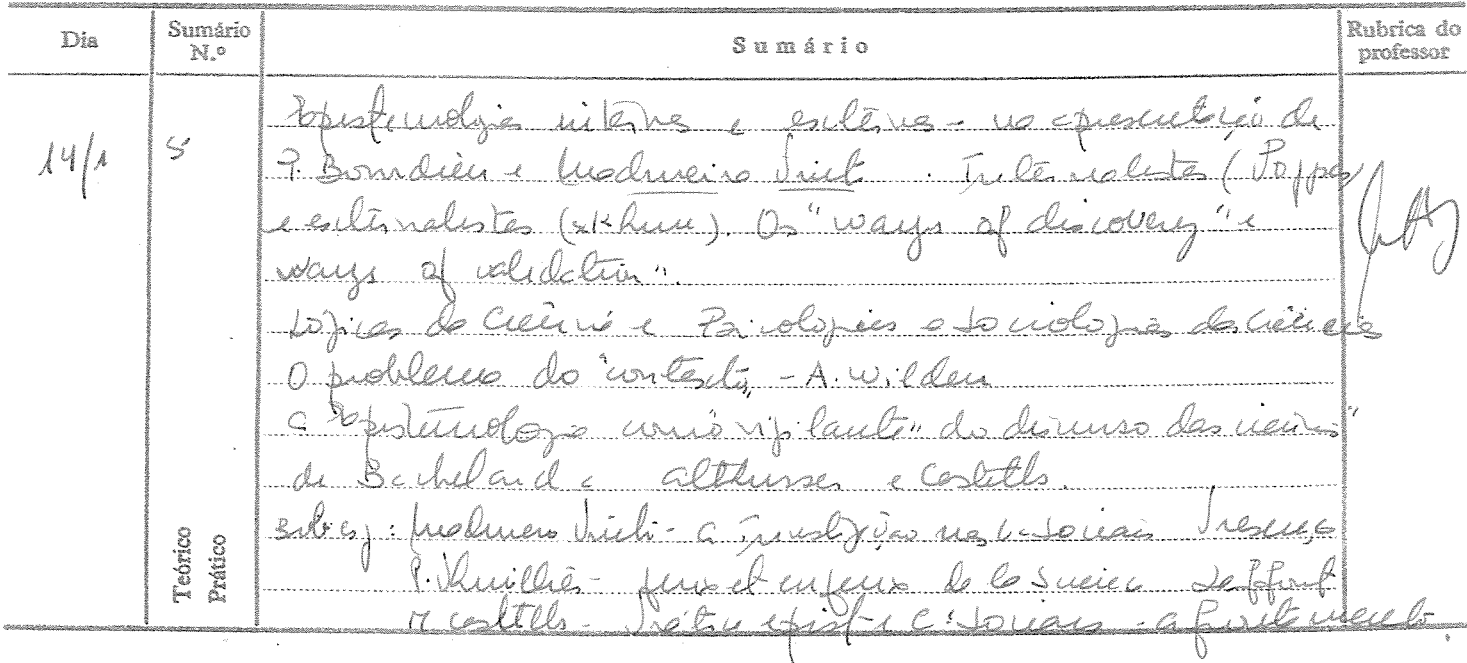 Dia
Sumário N.º
Sumário
Rubrica do professor
14/1
5
Epistemologias internas e externas - na apresentação de
P. Bourdieu e Madureira Pinto. Internalistas (Popper)
e externalistas (Khun). Os "ways of discovery" e
ways of validation".
Lógicas da Ciência e Psicologias e Sociologias das Ciências
O problema do "contexto" - A. Wilden
a "epistemologia como vigilante" do discurso das ciências
de Bachelard a Althusser e Castells.
Madureira Pinto - a Investigação nas C. Sociais Presença
P. Thuillier - Jeux et enjeux de la Science Laffont
M Castells - epist e C. Sociais - afrontamento
Teórico
Prático